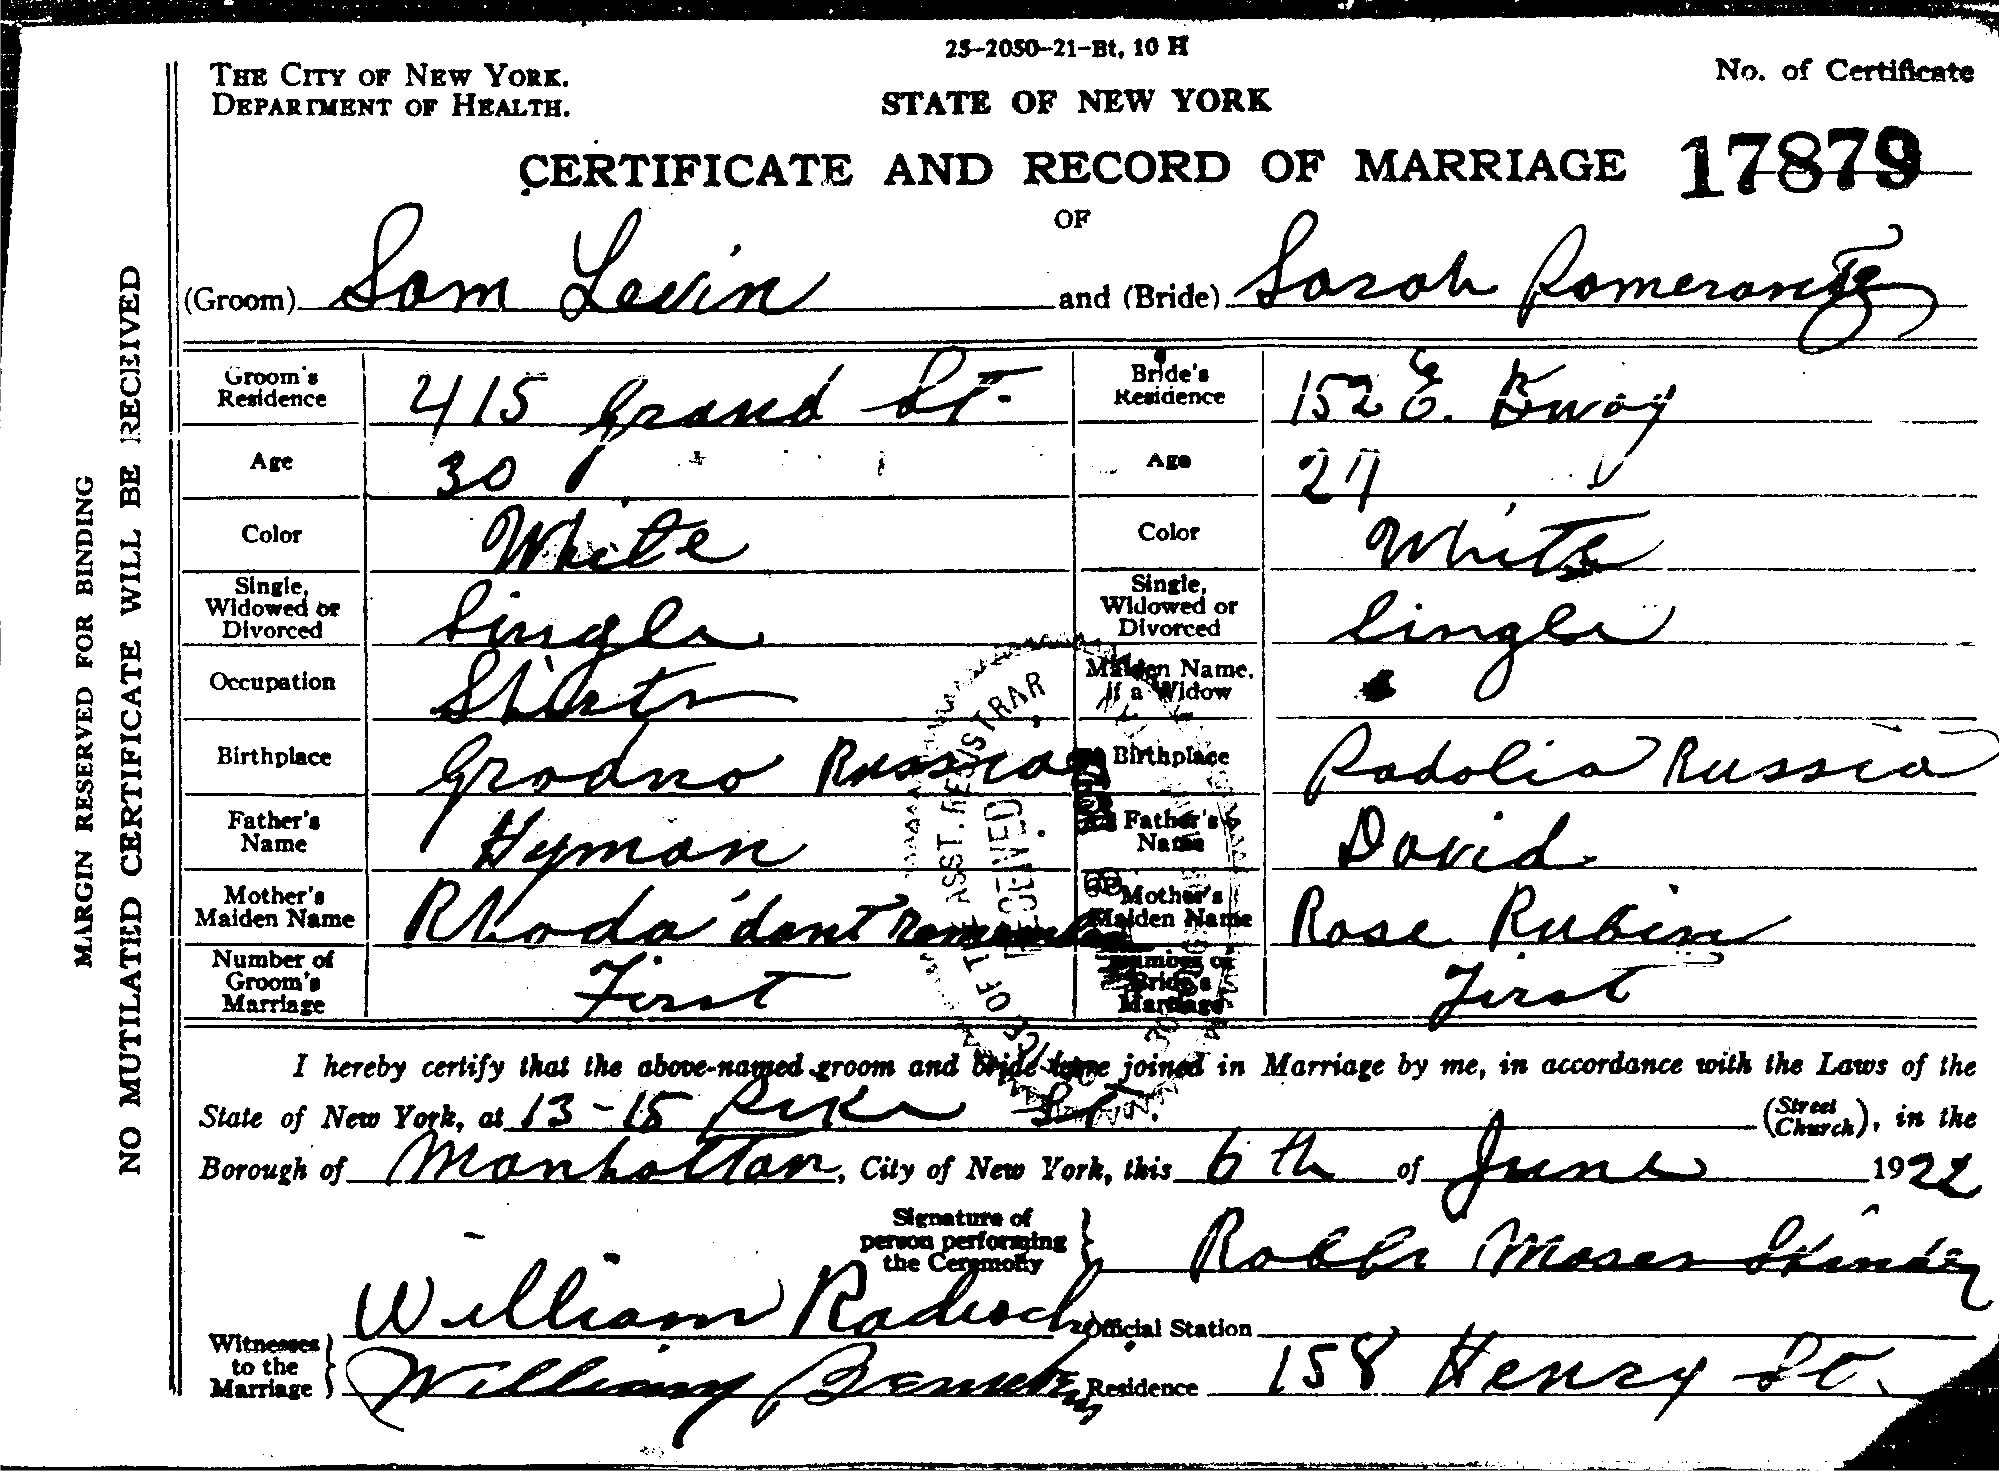 25-2050-21-Bt, 10 H
THE CITY OF NEW YORK.
DEPARTMENT OF HEALTH.
STATE OF NEW YORK
No. of Certificate
CERTIFICATE AND RECORD OF MARRIAGE 17879
OF
(Groom) Sam Levin and (Bride) Sarah Pomerantz
Groom's Residence 415 Grand St. Bride's Residence 152 E. Bway
Age 30 Age 27
Color White Color White
Single, Widowed or Divorced Single Single, Widowed or Divorced Single
Occupation Maiden Name, if a Widow
Birthplace Grodno Russia Birthplace Padolia Russia
Father's Name Hyman Father's Name David
Mother's Maiden Name Rhoda dont remember Mother's Maiden Name Rose Rubin
Number of Groom's Marriage First Number of Bride's Marriage First
I hereby certify that the above-named groom and bride were joined in Marriage by me, in accordance with the Laws of the
State of New York, at 13-15 Pike St. (Street Church), in the
Borough of Manhattan, City of New York, this 6th of June 1922
Signature of person performing the Ceremony Rabbi Moses
Witnesses to the Marriage William Official Station
William Residence 158 Henry St.
MARGIN RESERVED FOR BINDING
NO MUTILATED CERTIFICATE WILL BE RECEIVED
ASST. REGISTRAR
RECEIVED